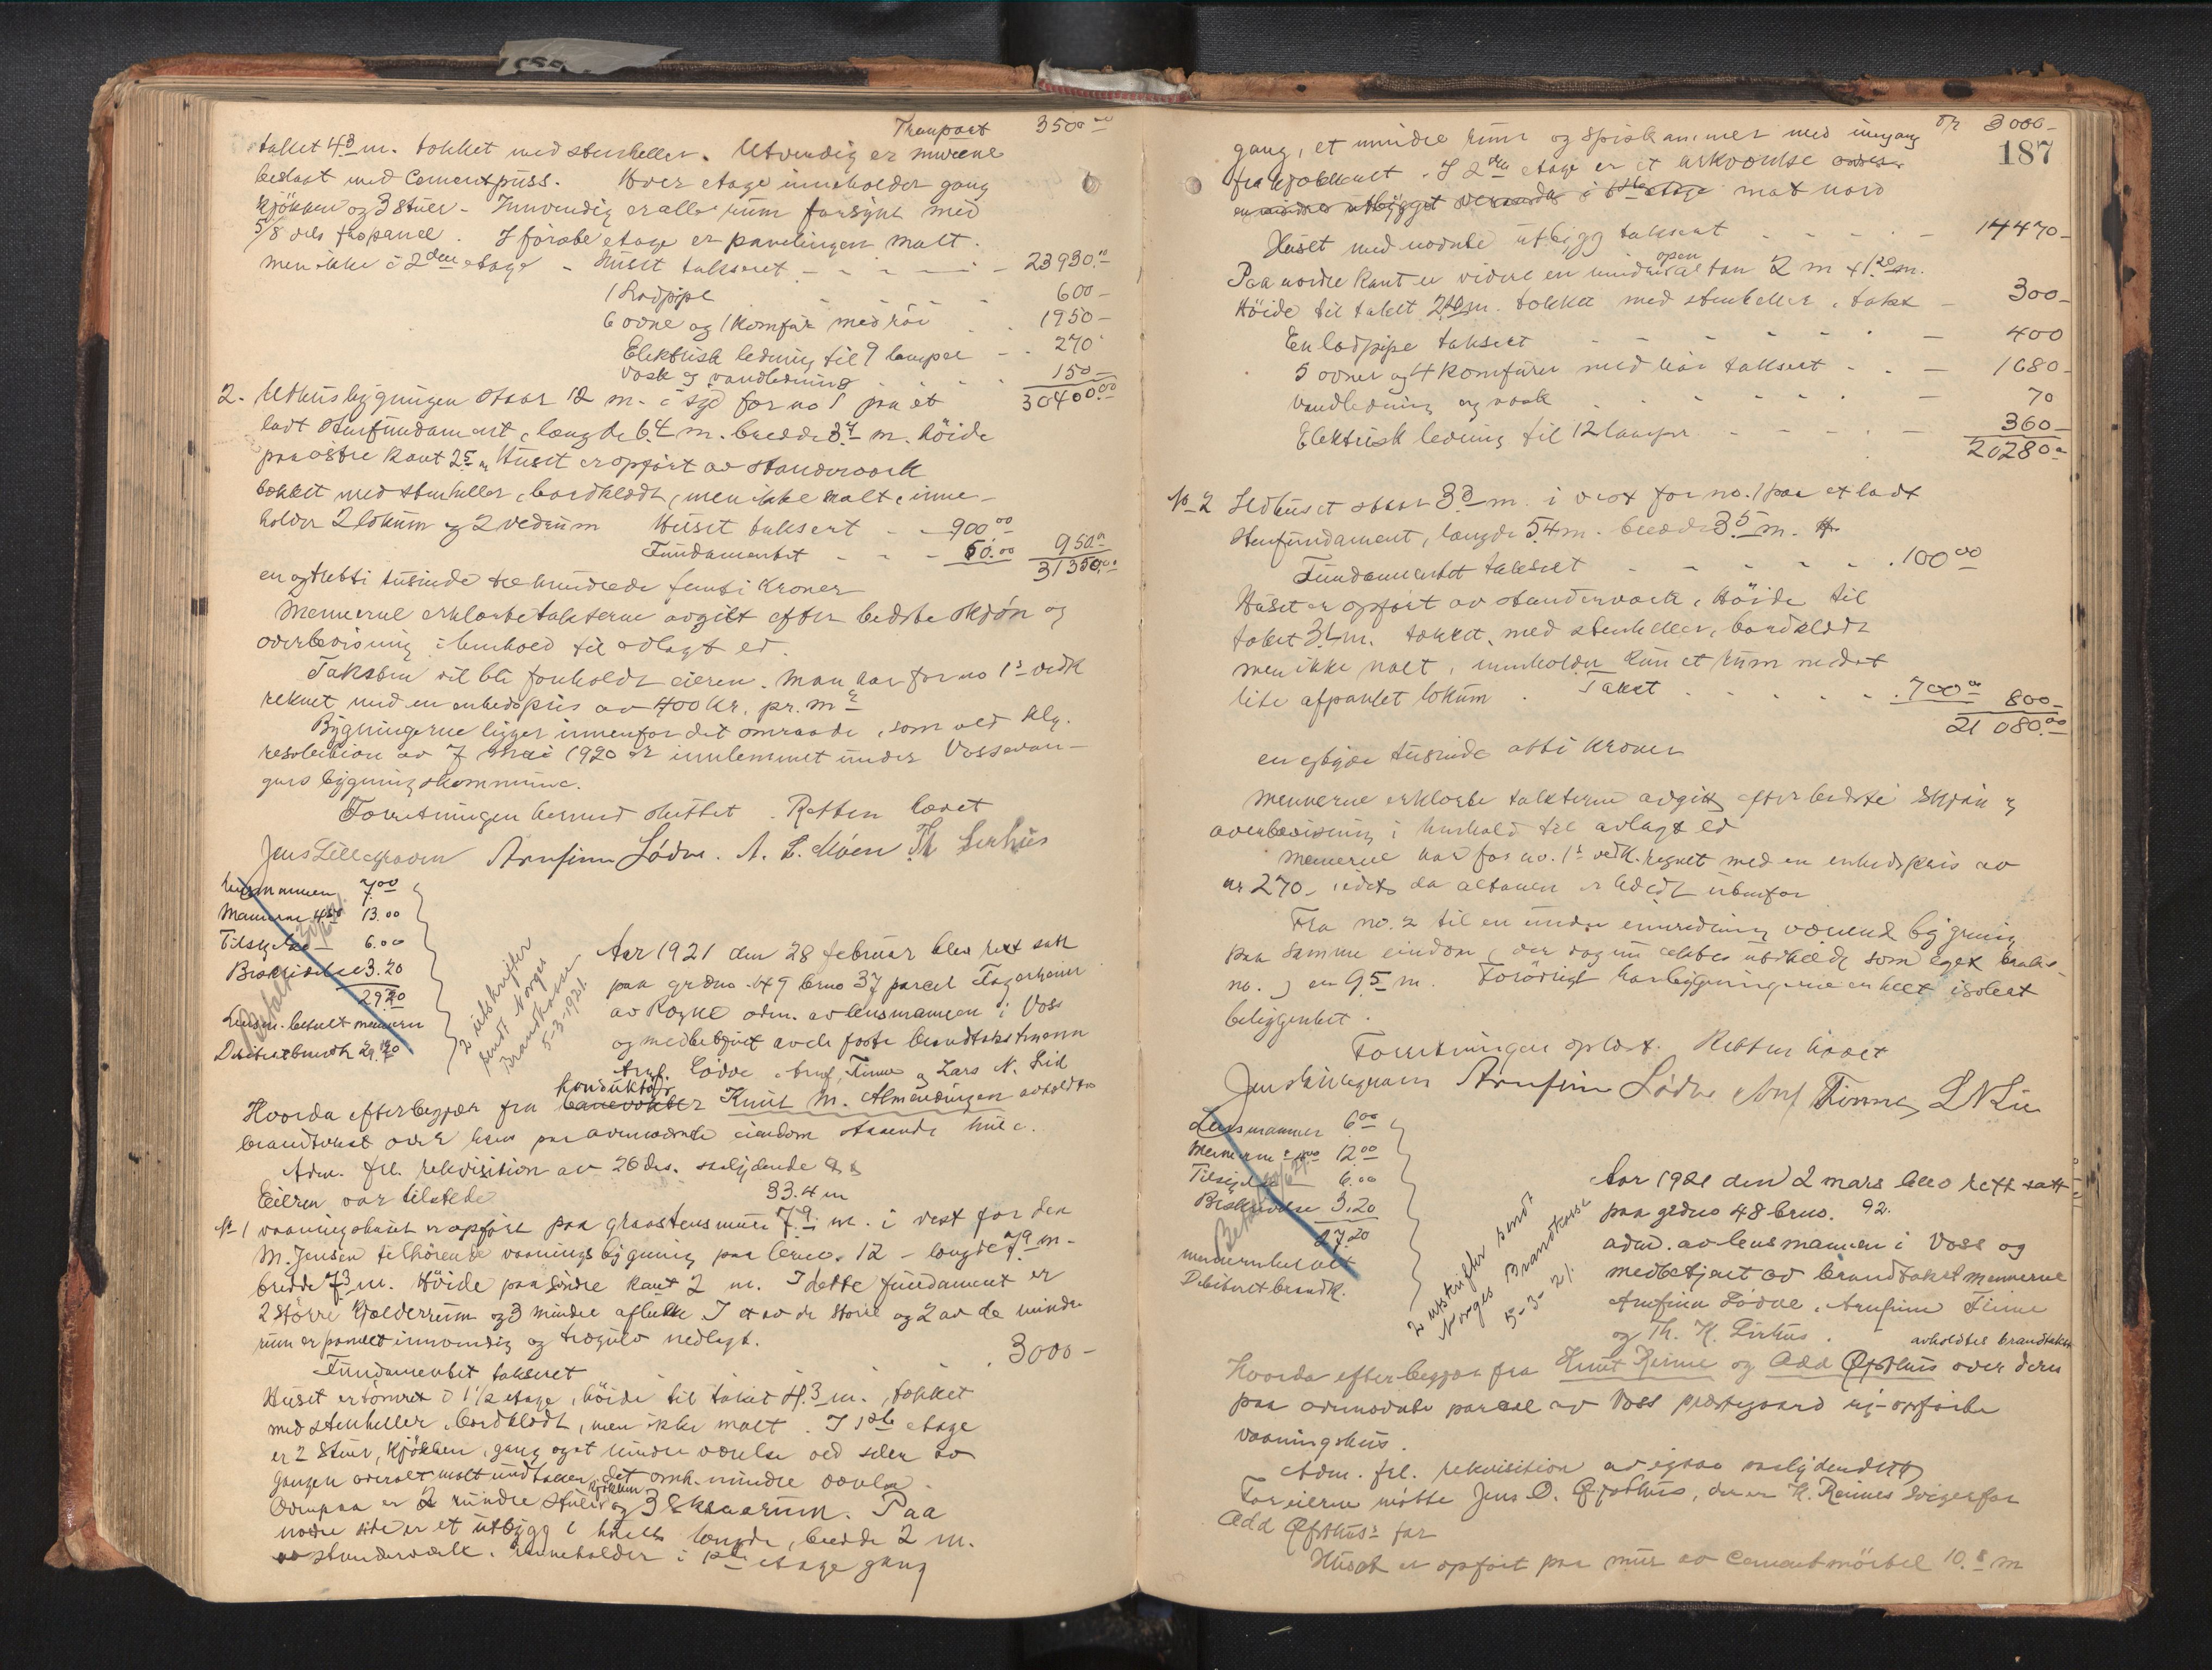 Transport 3500.00
taket 4.3 m. tækket med stenheller. Utvendig er murene
beslaat med Cementpuss. Hver etage inneholder gang
kjøkken og 3 stuer - Innvendig er alle rum forsynt med
5/8 dels faspanel. I første etage er panelingen malt.
men ikke i 2den etage - Huset taksert - 23930.00
1 Ladpipe 600 -
6 ovne og 1 komfür med rør 1950 -
Elektrisk ledning til 9 lamper - 270
Vask og vandledning 150 -
30400.00
2. Uthusbygningen staar 12 m. i syd for no 1 paa et
ladt stenfundament, længde 6.4 m. bredde 3.7 m. høide
paa østre kant 2.5 m Huset er opført av standerværk
tækket med stenheller, bordklædt, men ikke malt, inne-
holder 2 lokum og 2 vedrum Huset taksert - 900.00
Fundamentet - - 50.00 950.00
31350.00
en og tretti tusinde tre hundrede femti kroner
Mennerne erklærte taksterne avgitt efter bedste skjøn og
overbevisning i henhold til avlagt ed.
Taksten vil bli forholdt eieren. Man har for no 1s vedk
reknet med en enhedspris av 400 kr. pr. m2
Bygningerne ligger innenfor det omraade, som ved klg.
resolution av 7 mai 1920 er innlemmet under Vossevan-
gens bygningskommune.
Forretningen hermed sluttet. Retten hævet
Jens Lillegraven Arnfinn Lødve. A. L. Møen Th Lirhus
Lensmannen 7.00
Mennerne 4.50 13.00
Tilsigelse 6.00
Beskrivelse 3.20
29.20
Lensm. betalt mennern
Debitert brandk 29.20
Betalt
2 utskrifter
sendt Norges
Brandkasse
5-3-1921.
Aar 1921 den 28 februar blev rett satt
paa grdno 49 brno 37 parcel Fagerheim
av Rogne adm. av lensmannen i Voss
og medbetjent av de faste brandtakstmænn
Arnf. Lødve, Arnf. Finne og Lars N. Lid
konduktør
Hvorda efter begjær fra banevokter Knut M. Almendingen avholdtes
brandtakst over hans paa ovennævnte eiendom staaende huse.
Adm. frl. rekvisition av 26 ds. saalydende
Eieren var tilstede 33.4 m
No 1 vaaningshuset er opført paa graastensmur 7.9 m. i vest for den
M. Jensen tilhørende vaaningsbygning paa brno. 12 - længde 7.9 m -
bredde 7.3 m. Høide paa søndre kant 2 m. I dette fundament er
2 større kjælderrum og 3 mindre aflukke I et av de større og 2 av de mindre
rum er panelt innvendig og trægulv nedlagt.
Fundamentet taksert 3000 -
Huset er tømret i 1 1/2 etage, høide til taket 4.3 m., tækket
med stenheller, bordklædt, men ikke malt. I 1ste etage
er 2 stuer, kjøkken, gang og et mindre værelse ved siden av
gangen overalt malt undtaken det omh. mindre værelse.
kjøkken
Ovenpaa er 2 mindre stuer og 3 Ekstrarum. Paa
nordre side er et utbygg i husets længde, bredde 2 m.
av standerværk. Inneholder i 1ste etage gang
Tr 3000 -
187
gang, et mindre rum og spiskammer med inngang
fra kjøkkenet. I 2den etage er et arkværelse
en mindre utbygget veranda i 1ste etage mot nord
Huset med nævnte utbygg taksert - 14470 -
open
Paa nordre kant er videre en mindre altan 2 m x 1.20 m.
Høide til taket 2.40 m. tækket med stenheller, takst - 300 -
En ladpipe taksert 400
5 ovner og 4 komfürer med rør taksert - 1680 -
Vandledning og vask 70
Elektrisk ledning til 12 lamper 360 -
20280.00
No 2 Ildhuset staar 3.3 m. i vest for no. 1 paa et ladt
Stenfundament, længde 5.4 m. bredde 3.5 m.
Fundamentet taksert 100.00
Huset er opført av standerværk, Høide til
taket 3.1 m. tækket, med stenheller, bordklædt
men ikke malt, inneholder kun et rum med et
lite afpanlet lokum. Takst 700.00 800 -
21 080.00
en og tyve tusinde otti kroner
Mennerne erklærte taksterne avgitt efter bedste skjøn og
overbevisning i henhold til avlagt ed
Mennerne har for no. 1s vedk. regnet med en enhedspris av
kr 270 - idet da altanen er holdt utenfor
Fra no. 2 til en under innredning værende bygning
paa samme eiendom (der dog nu søkes utskildt som eget bruks-
no.) er 9.5 m. Forøvrigt har bygningerne en helt isolert
beliggenhet.
Forretningen oplæst. Retten hævet
Jens Lillegraven Arnfinn Lødve Arnf Finne L N Lid
Lensmannen 6.00
Mennerne 12.00
Tilsigelse 6.00
Beskrivelse 3.20
27.20
mennerne betalt
Debiteret brandk.
Betalt
2 utskrifter sendt
Norges Brandkasse
5-3-21.
Aar 1921 den 2 mars blev rett satt
paa grdno 48 brno. 92.
adm. av lensmannen i Voss og
medbetjent av brandtakstmennerne
Arnfinn Lødve, Arnfinn Finne
og Th. K. Lirhus. avholdtes brandtakst
Hvorda efter begjær fra Knut Reime og Odd Gjøsthus over deres
paa ovennævnte parcel av Voss prestegaard ny-opførte
vaaningshus.
Adm. frl. rekvisition av igaar saalydende
For eierne møtte Jens O. Gjøsthus, der er K. Reimes svigerfar
Odd Gjøsthus's far
Huset er opført paa mur av Cementmørtel 10.8 m